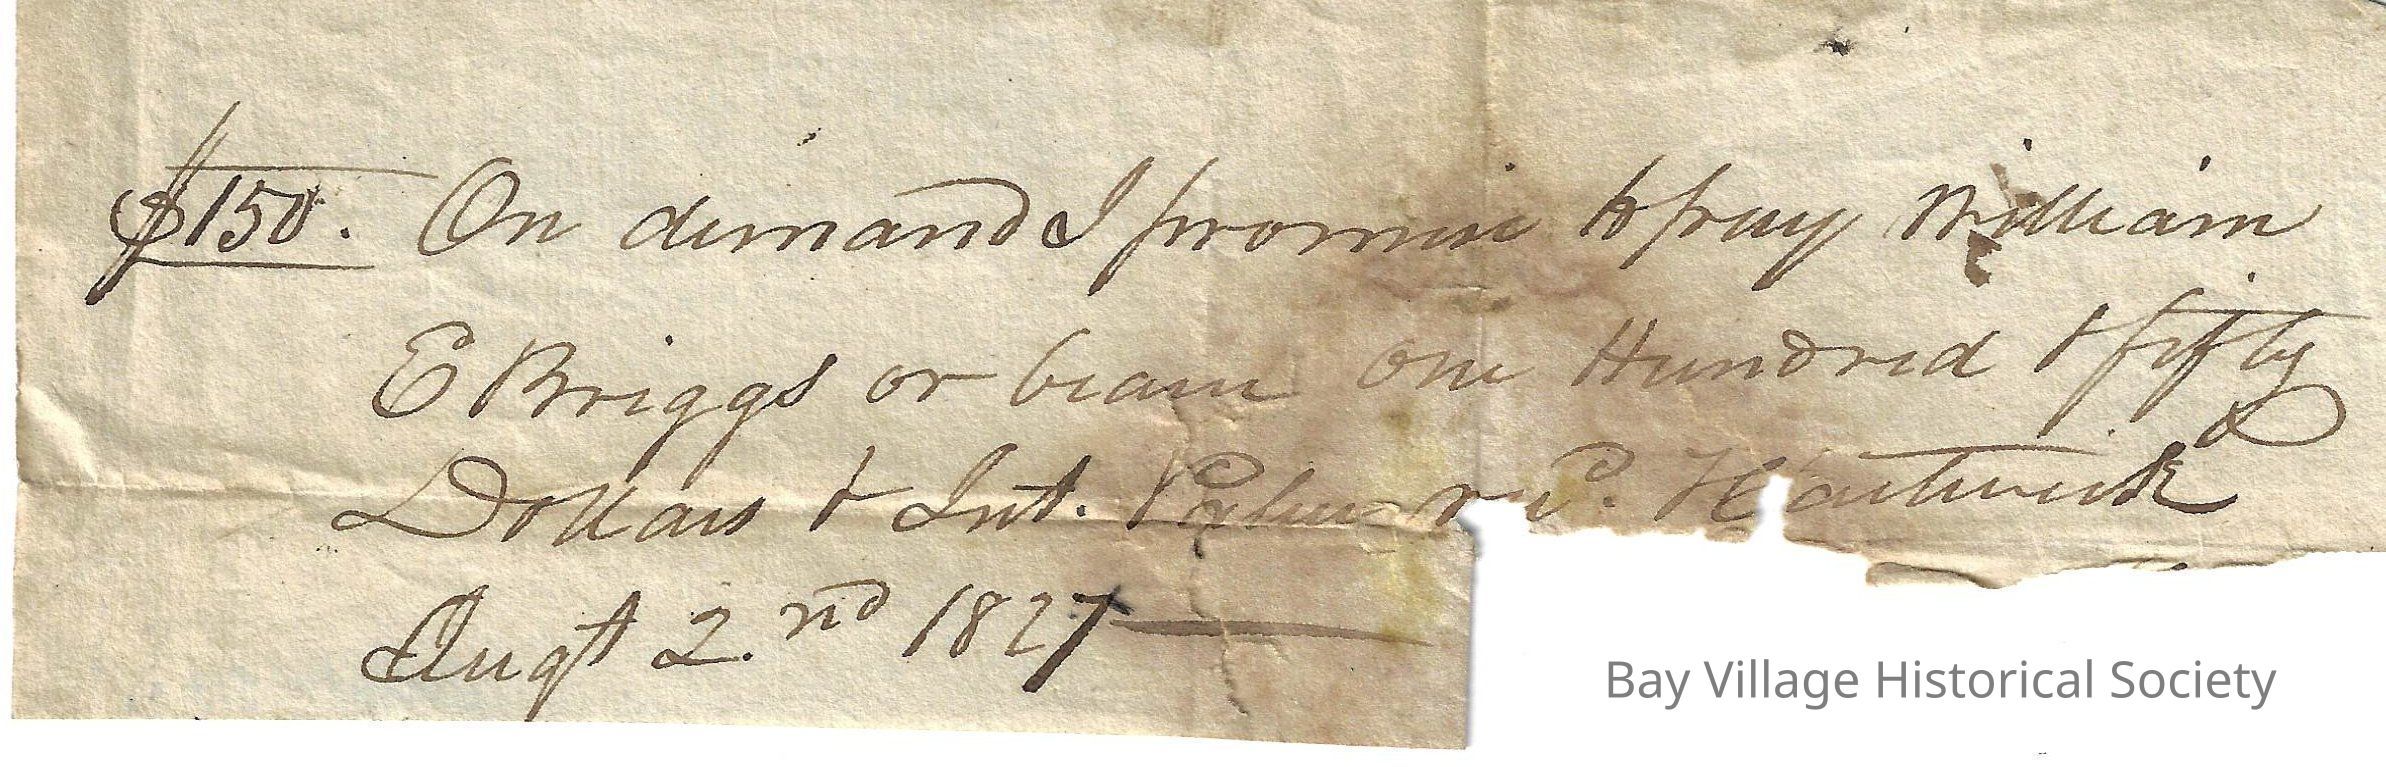 $150. On demand I promise to pay William
E Briggs or bearer one Hundred & fifty
Dollars & Int. Value recd. Hartwick
Augt 2.nd 1827
Bay Village Historical Society